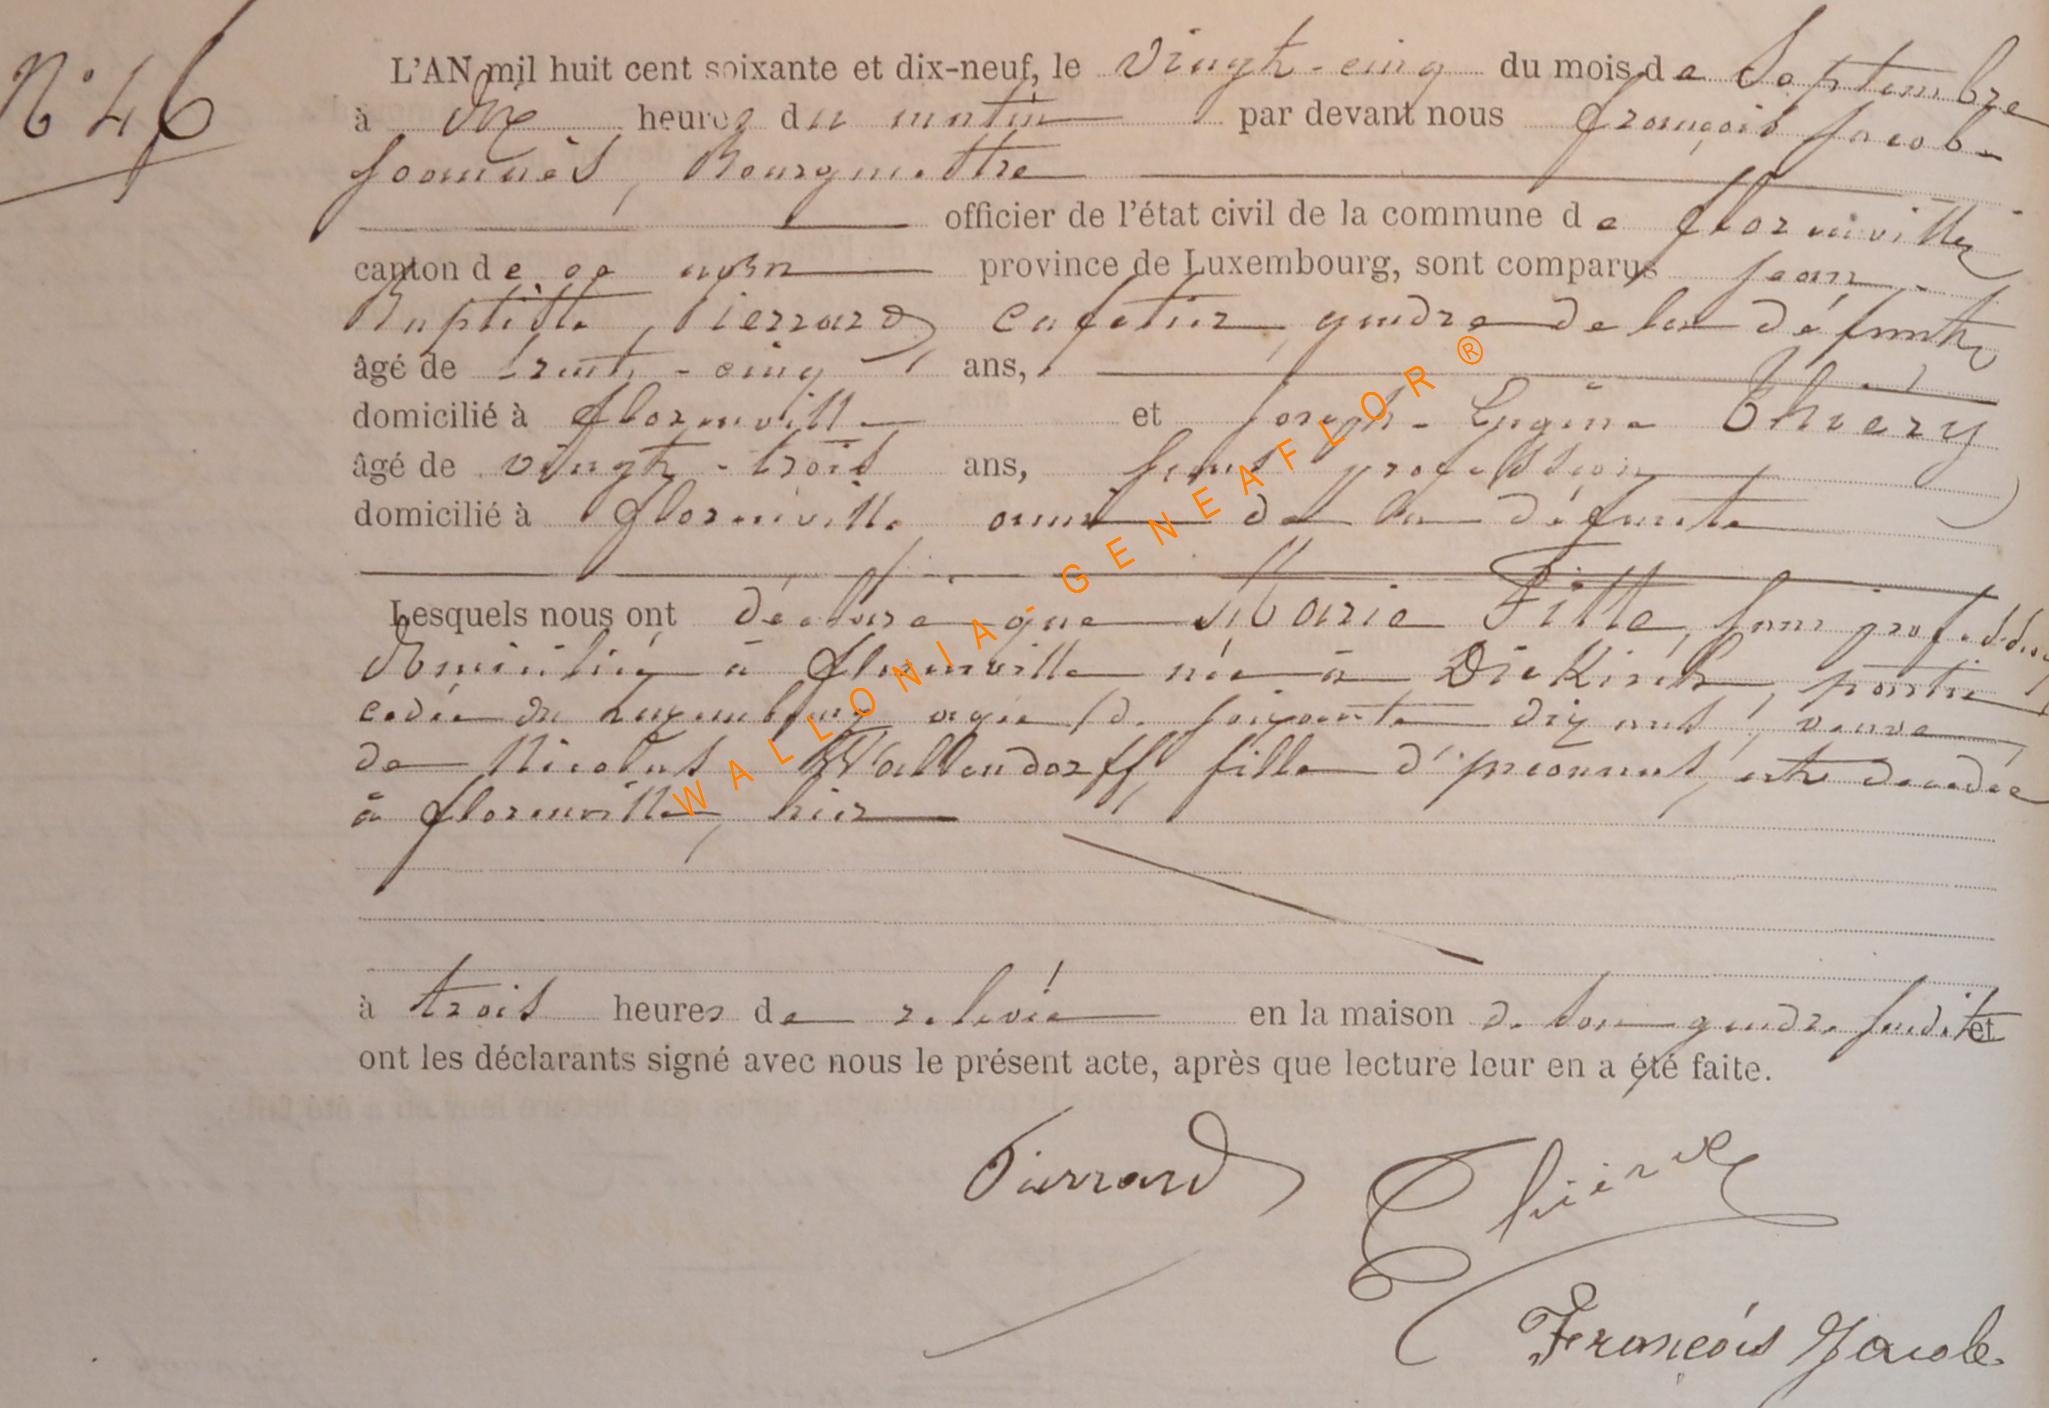 N° 46
L'AN mil huit cent soixante et dix-neuf, le Vingt-cinq du mois de Septembre
à dix heures du matin par devant nous François Jacob
Joannès, Bourgmestre
officier de l'état civil de la commune de Florenville
canton de ce nom province de Luxembourg, sont comparus Jean
Baptiste Pierrard, cafetier, gendre de la défunte
âgé de trente-cinq ans,
domicilié à Florenville et Joseph-Eugène Thiéry
âgé de vingt-trois ans, sans profession
domicilié à Florenville, ami de la défunte
Lesquels nous ont déclaré que Marie Fille, sans profession
domiciliée à Florenville née à Diekirch, partie
cédée du Luxembourg agée de soixante dix ans, veuve
de Nicolas Wallendorff, fille d'inconnus, est décédée
à Florenville, hier
à trois heures de relevée en la maison de son gendre susdit et
ont les déclarants signé avec nous le présent acte, après que lecture leur en a été faite.
Pierrard Thiery
François Jacob
WALLONIA-GENEAFLOR®